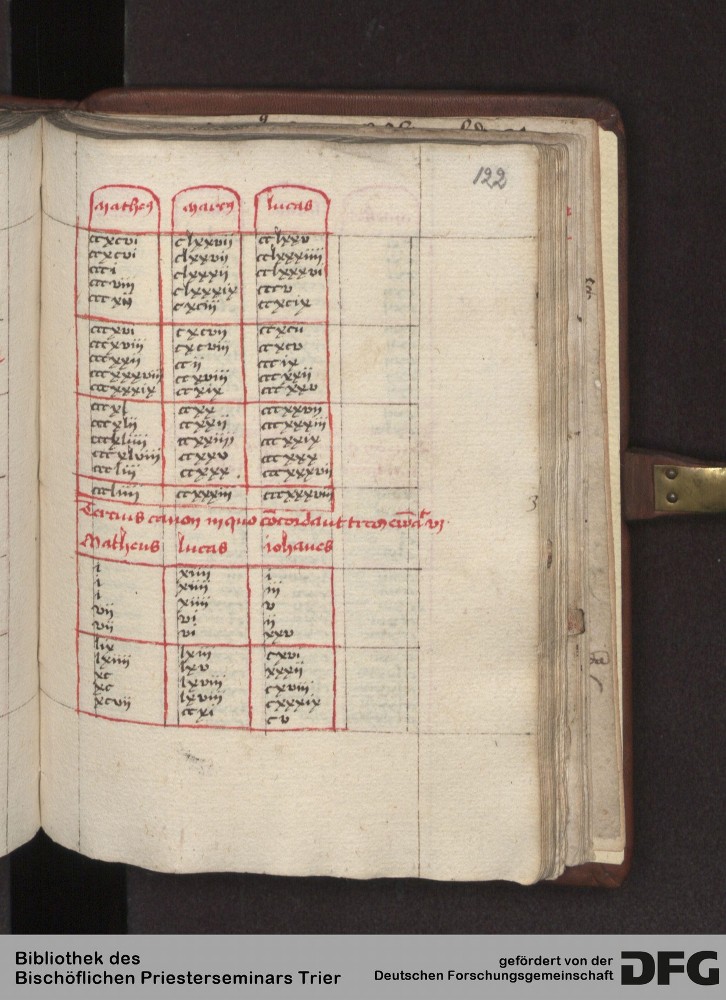 122
Matheꝰ marcꝰ lucas
ccxcvi clxxvii cclxxv
ccxcvi clxxvii cclxxxiiii
ccci clxxxii cclxxxvi
cccviii clxxxix cccv
cccxii cxciii ccxcix
cccxvi cxcvii ccxcii
cccxviii cxcviii ccxcv
cccxxii ccii cccix
cccxxxviii ccxviii cccxxii
cccxxxix ccxix cccxxv
cccxl ccxx cccxxvii
cccxlii ccxxii cccxxxiii
cccxliiii ccxxiiii cccxxix
cccxlviii ccxxv cccxxx
cccliii ccxxx cccxxxvii
cccliiii ccxxxiii cccxxxviii
Tercius canon in quo
Matheus lucas iohanes
i xiiii i
i xiiii iii
i xiiii v
vii vi ii
vii vi xxv
lix lxiii cxvi
lxiiii lxv xxxii
xc lxviii cxviii
xc lxviii cxxxix
xcvii ccxi cv
3
Bibliothek des
Bischöflichen Priesterseminars Trier
gefördert von der
Deutschen Forschungsgemeinschaft
DFG